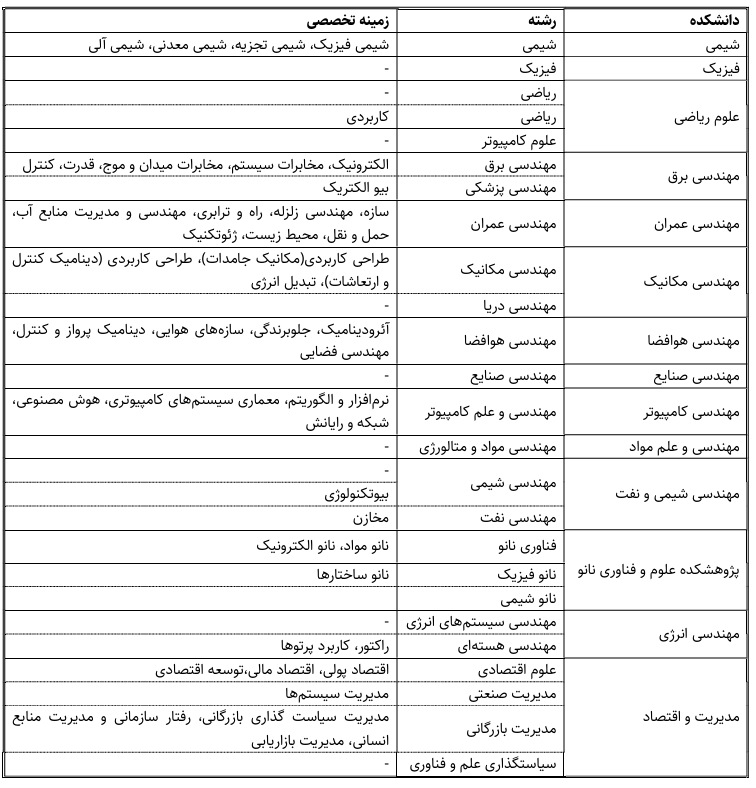 دانشکده رشته زمینه تخصصی
شیمی شیمی شیمی فیزیک، شیمی تجزیه، شیمی معدنی، شیمی آلی
فیزیک فیزیک -
علوم ریاضی ریاضی -
ریاضی کاربردی
علوم کامپیوتر -
مهندسی برق مهندسی برق الکترونیک، مخابرات سیستم، مخابرات میدان و موج، قدرت، کنترل
مهندسی پزشکی بیو الکتریک
مهندسی عمران مهندسی عمران سازه، مهندسی زلزله، راه و ترابری، مهندسی و مدیریت منابع آب،
حمل و نقل، محیط زیست، ژئوتکنیک
مهندسی مکانیک مهندسی مکانیک طراحی کاربردی(مکانیک جامدات)، طراحی کاربردی (دینامیک کنترل
و ارتعاشات)، تبدیل انرژی
مهندسی دریا -
مهندسی هوافضا مهندسی هوافضا آئرودینامیک، جلوبرندگی، سازه‌های هوایی، دینامیک پرواز و کنترل،
مهندسی فضایی
مهندسی صنایع مهندسی صنایع -
مهندسی کامپیوتر مهندسی و علم کامپیوتر نرم‌افزار و الگوریتم، معماری سیستم‌های کامپیوتری، هوش مصنوعی،
شبکه و رایانش
مهندسی و علم مواد مهندسی مواد و متالورژی -
مهندسی شیمی و نفت مهندسی شیمی -
بیوتکنولوژی
مهندسی نفت مخازن
پژوهشکده علوم و فناوری نانو فناوری نانو نانو مواد، نانو الکترونیک
نانو فیزیک نانو ساختارها
نانو شیمی
مهندسی انرژی مهندسی سیستم‌های انرژی -
مهندسی هسته‌ای راکتور، کاربرد پرتوها
مدیریت و اقتصاد علوم اقتصادی اقتصاد پولی، اقتصاد مالی،توسعه اقتصادی
مدیریت صنعتی مدیریت سیستم‌ها
مدیریت بازرگانی مدیریت سیاست گذاری بازرگانی، رفتار سازمانی و مدیریت منابع
انسانی، مدیریت بازاریابی
سیاستگذاری علم و فناوری -